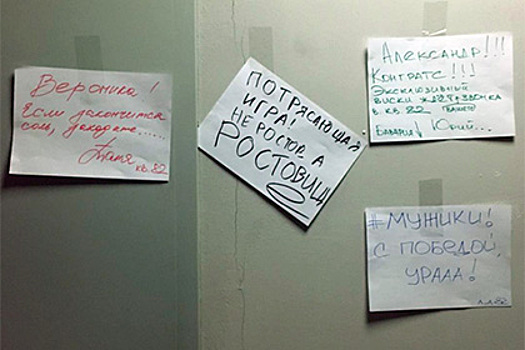 Вероника!
Если закончится
соль, заходите.....
Таня
кв. 82
ПОТРЯСАЮЩАЯ
ИГРА!
НЕ РОСТОВ, А
РОСТОВИЩЕ
АЛЕКСАНДР!!!
КОНГРАТС!!!
ЭКСКЛЮЗИВНЫЙ
ВИСКИ ЖДЕТ ЗВОНКА
В КВ. 82
БАВАРИЯ ЮРИЙ...
#МУЖИКИ!
С ПОБЕДОЙ,
УРААА!